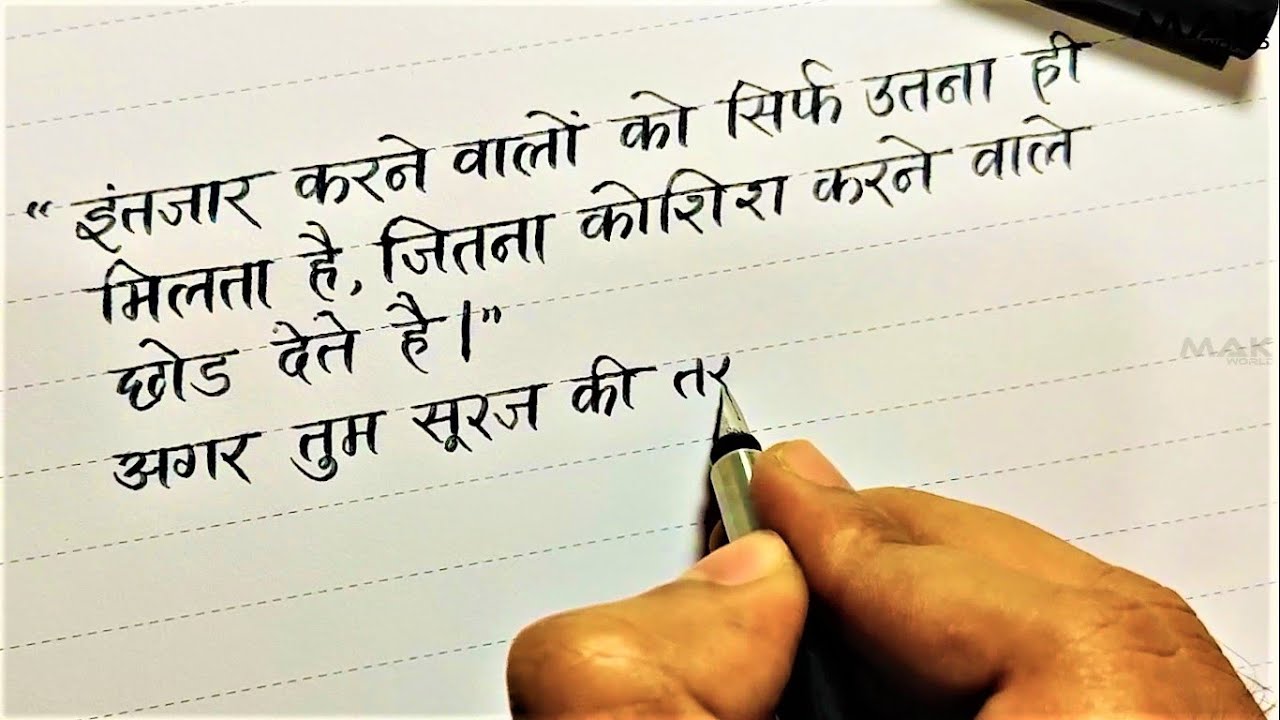 “ इंतजार करने वालों को सिर्फ उतना ही
मिलता है, जितना कोशिश करने वाले
छोड देते है।”
अगर तुम सूरज की तर
MAK
WORLD